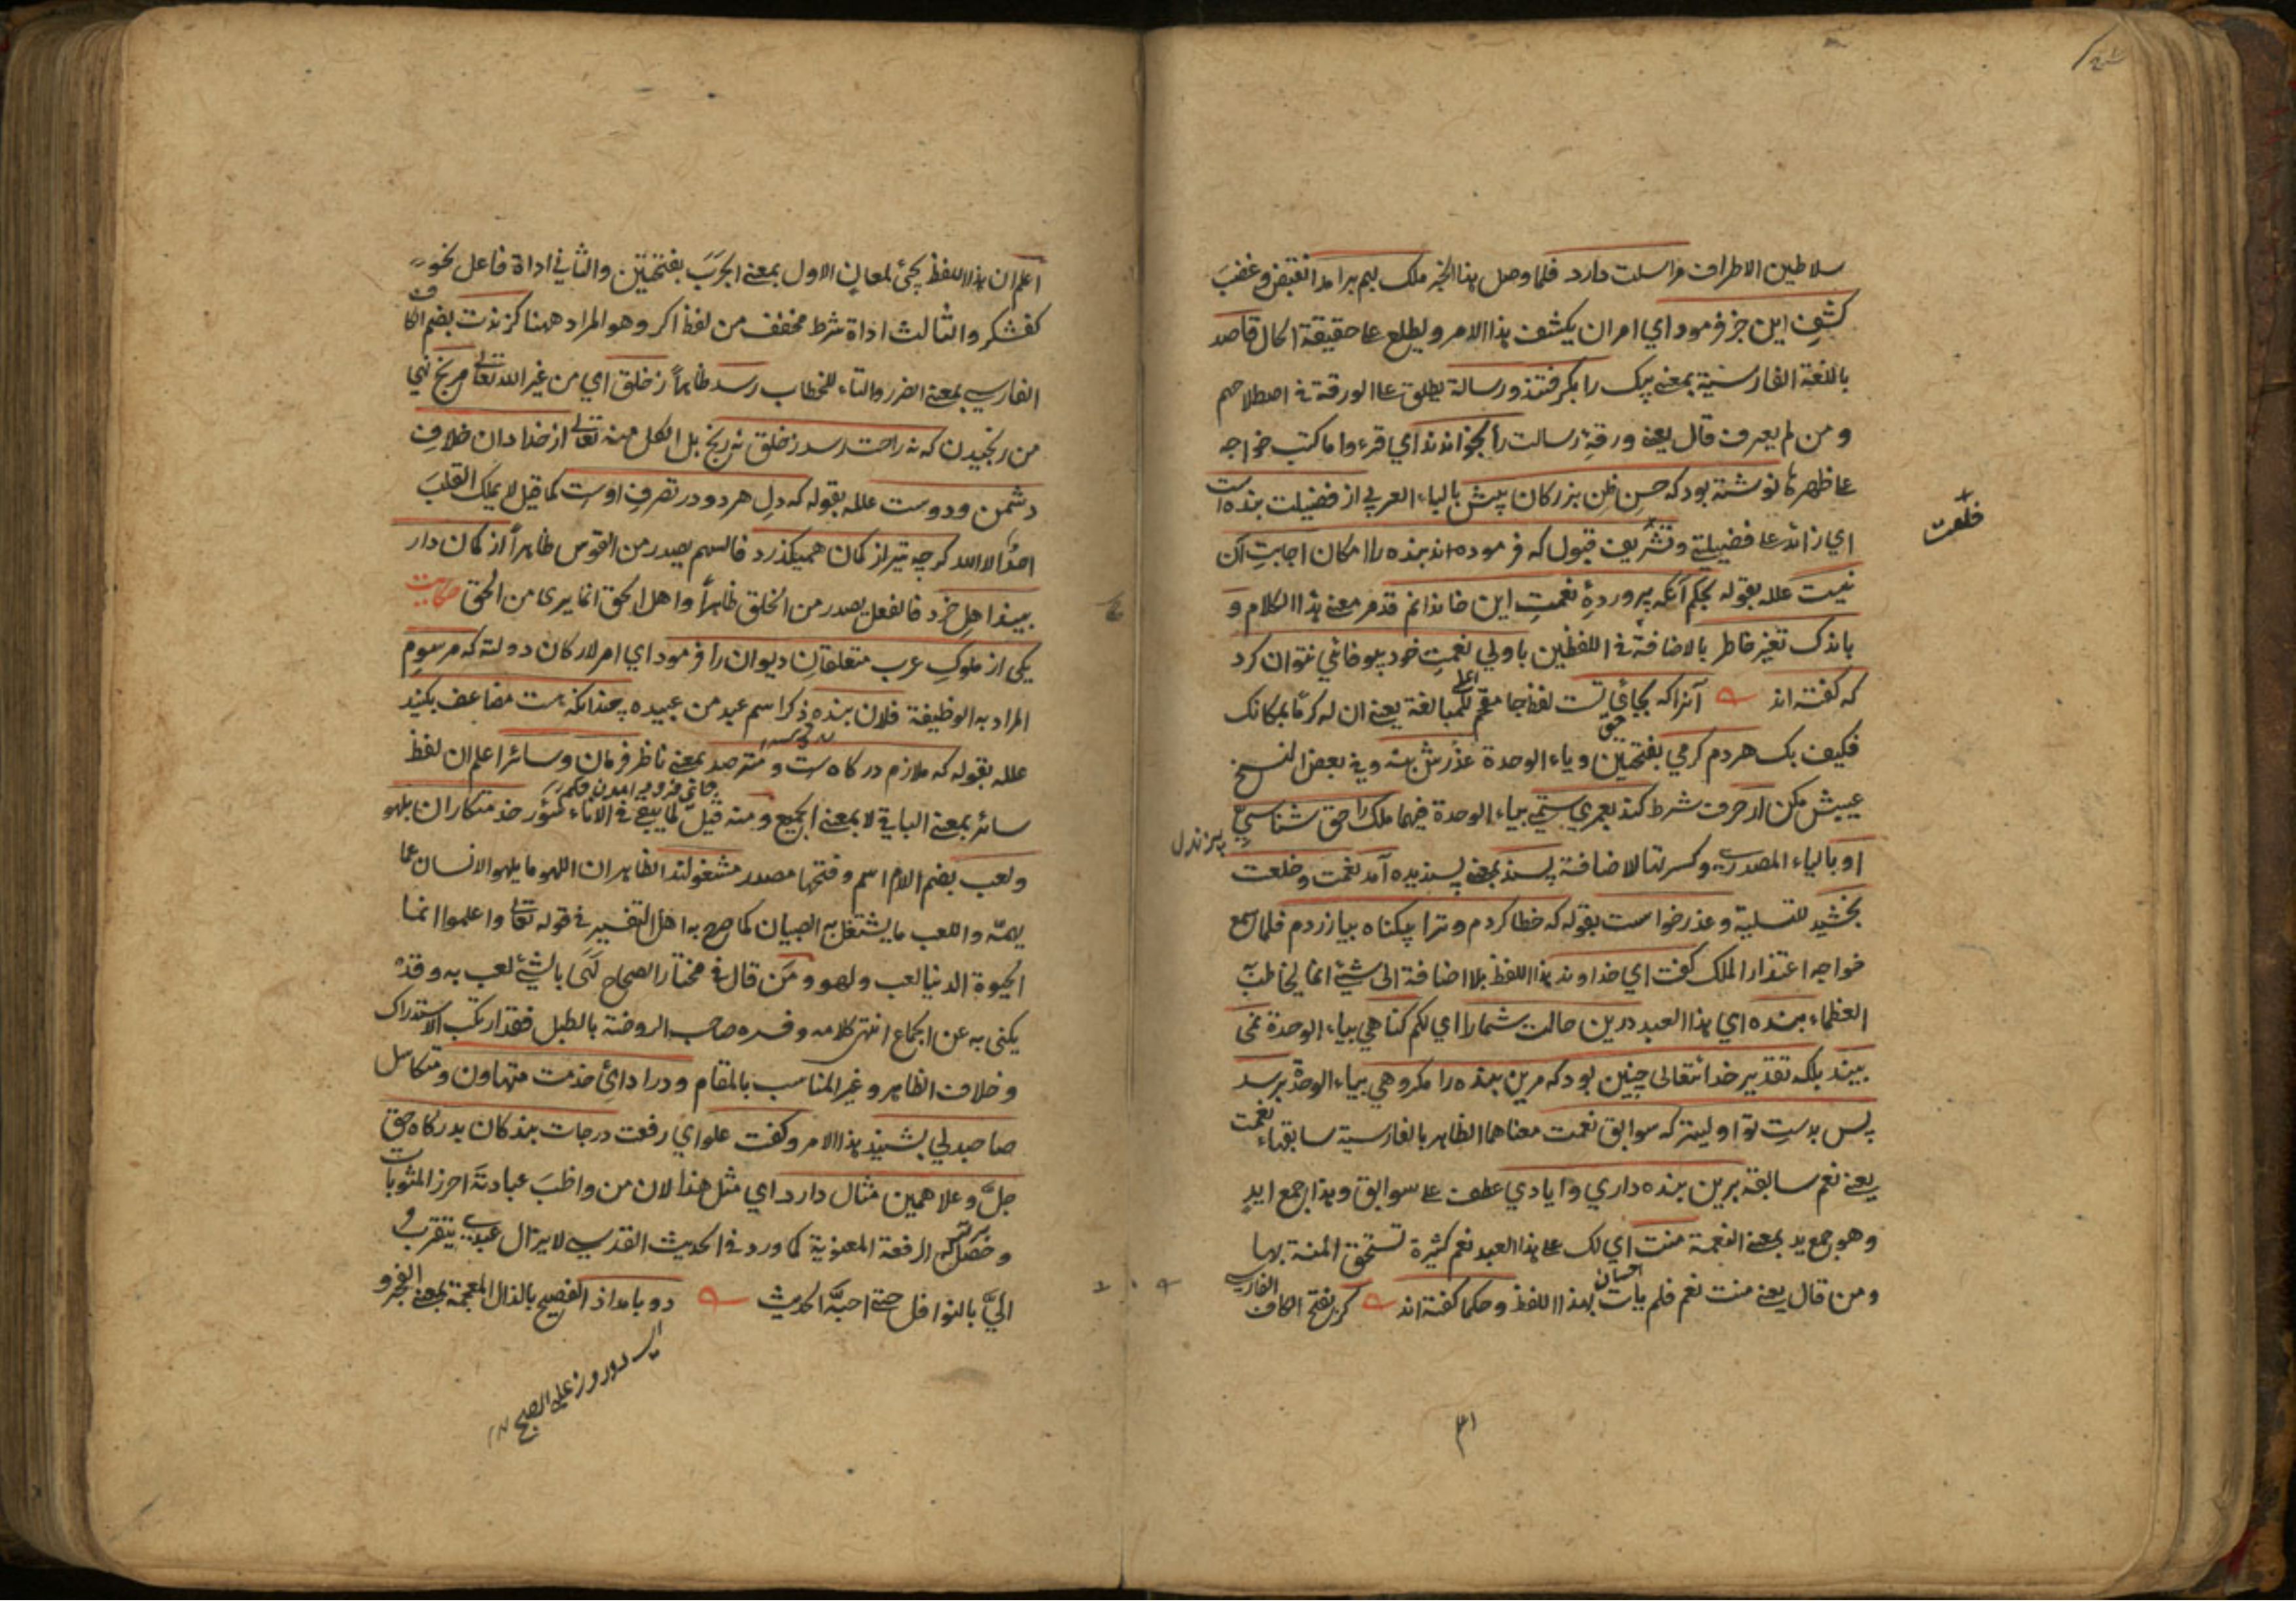 سلاطين الاطراف مراسلت دارد فلما وصل هذا الخبر ملک بهم برامد انقبض وغضب
كشف اين خبر فرمود اي امر ان يكشف هذا الامر ويطلع على حقيقة الحال قاصد
باللغة الفارسية بمعنى پيک را بكرفتند ورسالة يطلق على الورقة في اصطلاحهم
ومن لم يعرف قال يعنى ورقۀ رسالت را بخواندند اي قرءوا ما كتب خواجه
على ظهرها نوشته بود كه حسن ظن بزركان پيش بالباء العربي از فضيلت بنده است
اي زائد على فضيلتي وتشريف قبول كه فرموده اند بنده را امكان اجابت آن
نيست علله بقوله بحكم آنكه پروردۀ نعمت اين خاندانم قدمر معنى هذا الكلام و
باندک تغير خاطر بالاضافة في اللفظين با ولي نعمت خود بيوفائي نتوان كرد
كه كفته اند آنرا كه بجاي تست لفظ جا مقحم للمبالغة يعنى ان له كرما بمكانک
فكيف بک هر دم كرمي بفتحتين وياء الوحدة عذرش بنه وفي بعض النسخ
عيبش مكن ار حرف شرط كند بعمري ستمي بياء الوحدة فيهما ملک را حق شناسي
او بالياء المصدرية وكسرتها لاضافة پسند بمعنى پسنديده آمد نعمت وخلعت
بخشيد للتسلية وعذر خواست بقوله كه خطا كردم وترا بيكناه بيازردم فلما سمع
خواجه اعتذار الملک كفت اي خداوند هذا اللفظ بلا اضافة الى شيء انما يخاطب
العظماء بنده اي هذا العبد درين حالت شمارا اي لكم كناهي بياء الوحدة نمى
بيند بلكه تقدير خدا تعالى چنين بود كه مرين بنده را مكروهي بياء الوحدة برسد
پس بدست تو اوليتر كه سوابق نعمت معناهما الظاهر بالفارسية سابقهاء نعمت
يعنى نعم سابقة برين بنده داري وايادي عطف على سوابق وهذا جمع ايد
وهو جمع يد بمعنى النعمة منت اي لک على هذا العبد نعم كثيرة تستحق المنة بها
ومن قال يعنى منت نعم فلم يات بهذا اللفظ وحكما كفته اند كر بفتح الكاف الفارسي
خلعت
احسان
٤١
اعلم ان هذا اللفظ يجئ لمعان الاول بمعنى الجرب بفتحتين والثاني اداة فاعل نحو
كفشكر والثالث اداة شرط مخفف من لفظ اكر وهو المراد ههنا كزندت بضم الكاف
الفارسي بمعنى الضرر والتاء للخطاب رسد ظاهرا ز خلق اي من غير الله تعالى مرنج نهي
من رنجيدن كه نه راحت رسد ز خلق نه رنج بل الكل منه تعالى از خدا دان خلاف
دشمن ودوست علله بقوله كه دل هر دو در تصرف اوست كما قيل لا يملک القلب
احد الا الله كرچه تير از كمان هميكذرد فالسهم يصدر من القوس ظاهرا از كمان دار
بيند اهل خرد فالفعل يصدر من الخلق ظاهرا واهل الحق انما يرى من الحق حكايت
يكى از ملوک عرب متعلقان ديوان را فرمود اي امر لاركان دولته كه مرسوم
المراد به الوظيفة فلان بنده ذكر اسم عبد من عبيده چندانكه هست مضاعف بكنيد
علله بقوله كه ملازم دركاه ست ومترصد بمعنى ناظر فرمان وسائر اعلم ان لفظ
سائر بمعنى الباقي لا بمعنى الجميع ومنه قيل لما يبقى في الاناء سؤر خدمتكاران بلهو
ولعب بضم اللام اسم وفتحها مصدر مشغولند الظاهر ان اللهو ما يلهو الانسان عما
يهمه واللعب ما يشتغل به الصبيان كما صرح به اهل التفسير في قوله تعالى واعلموا انما
الحيوة الدنيا لعب ولهو ومن قال في مختار الصحاح لهى بالشئ لعب به وقد
يكنى به عن الجماع انتهى كلامه وفسره صاحب الروضة بالطبل فقد ارتكب الاستدراک
وخلاف الظاهر وغير المناسب بالمقام ودر اداي خدمت متهاون ومتكاسل
صاحبدلي بشنيد هذا الامر وكفت علو اي رفعت درجات بندكان بدركاه حق
جل وعلا همين مثال دارد اي مثل هذا لان من واظب عبادته احرز المثوبات
وحصل له الرفعة المعنوية كما ورد في الحديث القدسي لا يزال عبدي يتقرب
الي بالنوافل حتى احبه الحديث دو بامداد الفصيح بالذال المعجمة بمعنى الفجر و